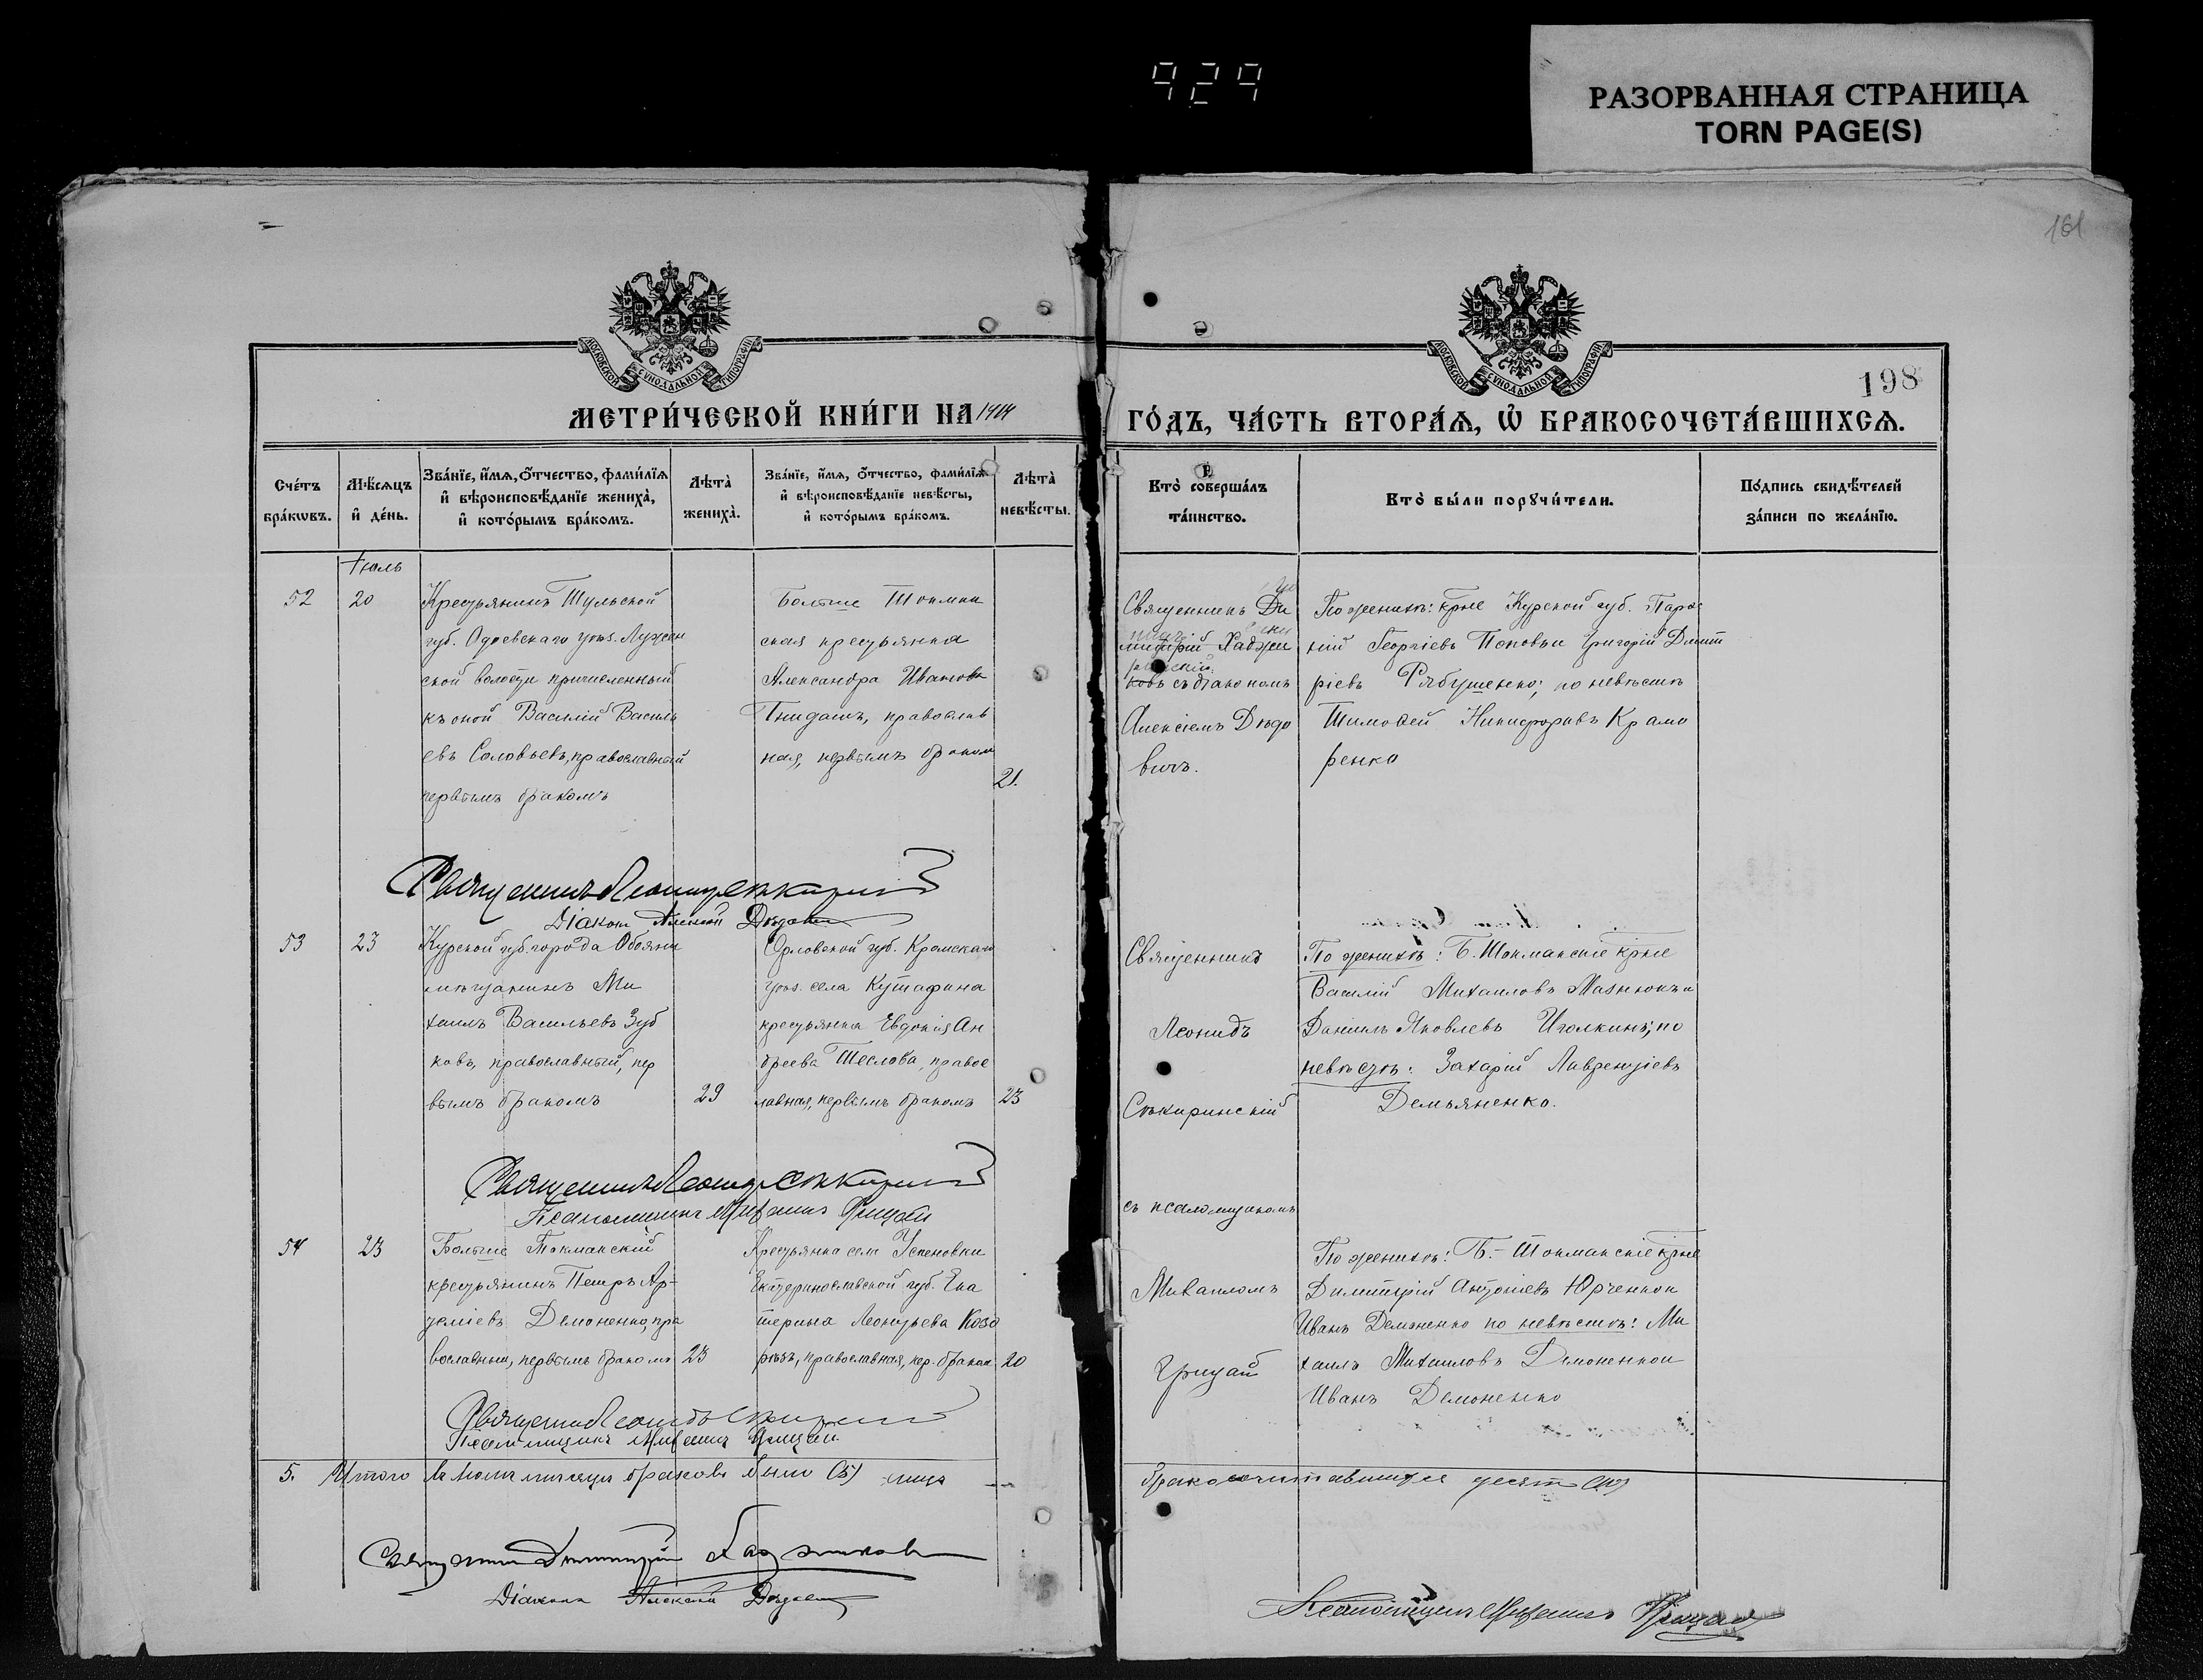 929
РАЗОРВАННАЯ СТРАНИЦА
TORN PAGE(S)
161
МОСКОВСКОЙ СѴНОДАЛЬНОЙ ТИПОГРАФІИ
МОСКОВСКОЙ СѴНОДАЛЬНОЙ ТИПОГРАФІИ
198
МЕТРИ́ЧЕСКОЙ КНИ́ГИ НА 1914
ГО́ДЪ, ЧА́СТЬ ВТОРА́Ѧ, Ѿ БРАКОСОЧЕТА́ВШИХСѦ.
Сче́тъ
бра́кѡвъ.
Мѣ́сѧцъ
и҆ де́нь.
Зва́нїе, и҆́мѧ, ѻ҆́тчество, фами́лїѧ
и҆ вѣроисповѣ́данїе жениха̀,
и҆ кото́рымъ бра́комъ.
Лѣта̀
жениха̀.
Зва́нїе, и҆́мѧ, ѻ҆́тчество, фами́лїѧ
и҆ вѣроисповѣ́данїе невѣ́сты,
и҆ кото́рымъ бра́комъ.
Лѣта̀
невѣ́сты.
Кто̀ соверша́лъ
та́инство.
Кто̀ бы́ли порꙋчи́тели.
По́дпись свидѣ́телей
за́писи по жела́нїю.
Іюль
52
20
Крестьянинъ Тульской
губ. Одоевскаго уѣз. Лужен
ской волости причисленный
къ оной Василій Василь
евъ Соловьевъ, православный
первымъ бракомъ
Больше Токмак
ская крестьянка
Александра Иванова
Гнидашъ, православ
ная, первымъ бракомъ
21.
Священникъ Ди
митрій Хаджи
ковъ съ діакономъ
Алексіемъ Дѣдо
вичъ.
По женихѣ: крне Курской губ.
кій Георгіевъ Поповъ и Григорій Димит
ріевъ Рябушенко; по невѣстѣ
Тимоѳей Никифоровъ Крама
ренко
Священникъ Леонидъ Сѣкиринскій
Діаконъ Алексій Дѣдовичъ
53
23
Курской губ. города Обояни
мѣщанинъ Ми
хаилъ Васильевъ Зуб
ковъ, православный, пер
вымъ бракомъ
29
Орловской губ. Кромскаго
уѣз. села Кутафина
крестьянка Евдокія Ан
дреева Теслова, правос
лавная, первымъ бракомъ
23
Священникъ
Леонидъ
Сѣкиринскій
съ псаломщикомъ
Миваиломъ
Грицай
По женихѣ: Б. Токмакскіе крне
Василій Михаиловъ Мазнюкъ и
Даніилъ Яковлевъ Иголкинъ; по
невѣстѣ: Захарій Лаврентіевъ
Демьяненко.
Священникъ Леонидъ Сѣкиринскій
Псаломщикъ Грицай
54
23
Больше Токмакскій
крестьянинъ Петръ Ар-
теміевъ Демоненко, пра
вославный, первымъ бракомъ
23
Крестьянка села Успеновки
Екатеринославской губ. Ека
терина Леонтьева Козо
рѣзъ, православная, пер. бракомъ
20
По женихѣ: Б.- Токмакскіе крне
Димитрій Антоніевъ Юрченко и
Иванъ Демоненко по невѣстѣ: Ми
хаилъ Михаиловъ Демоненко и
Иванъ Демоненко
Священникъ Леонидъ Сѣкиринскій
Псаломщикъ Грицай
5. Итого въ Іюлѣ мѣсяцѣ браковъ было (5) лицъ
бракосочитавшихся десять (10)
Священникъ Димитрій Хаджиковъ
Діаконъ Алексій Дѣдовичъ
Псаломщикъ Грицай